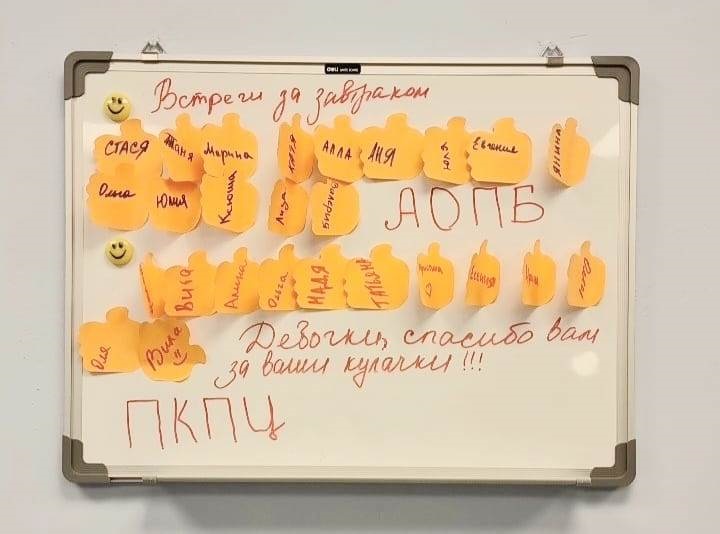 deli
Встречи за завтраком
СТАСЯ Таня Марина КАТЯ АЛЛА АНЯ Юля Евгения ЯНИНА
Ольга Юлия Ксюша Лиза Валерия
АОПБ
Вика Алина Ольга НАДЯ ТАТЬЯНА Кристина Евгения
Оля Вика
Девочки, спасибо вам
за ваши кулачки!!!
ПКПЦ